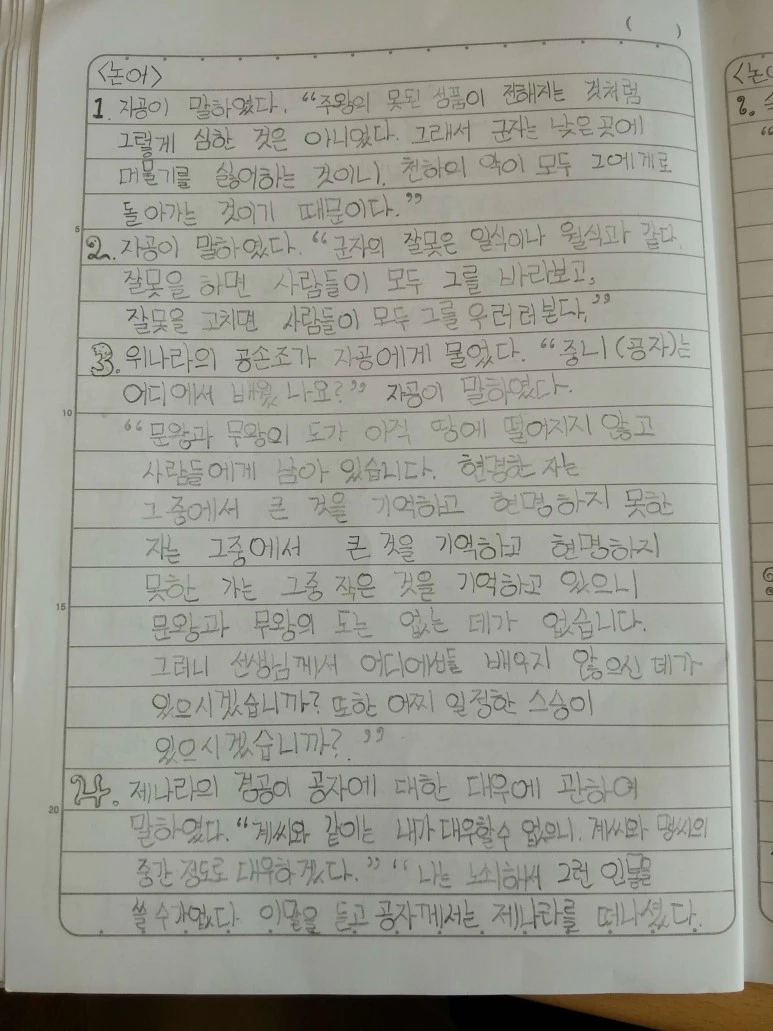 (          )
<논어>
1. 자공이 말하였다. “주왕의 못된 성품이 전해지는 것처럼
그렇게 심한 것은 아니었다. 그래서 군자는 낮은 곳에
머물기를 싫어하는 것이니, 천하의 악이 모두 그에게로
돌아가는 것이기 때문이다.”
5
2. 자공이 말하였다. “군자의 잘못은 일식이나 월식과 같다.
잘못을 하면 사람들이 모두 그를 바라보고,
잘못을 고치면 사람들이 모두 그를 우러러본다.”
3. 위나라의 공손조가 자공에게 물었다. “중니(공자)는
어디에서 배웠나요?” 자공이 말하였다.
10
“문왕과 무왕의 도가 아직 땅에 떨어지지 않고
사람들에게 남아 있습니다. 현명한 자는
그중에서 큰 것을 기억하고 현명하지 못한
자는 그중에서 큰 것을 기억하고 현명하지
못한 가는 그중 작은 것을 기억하고 있으니
15
문왕과 무왕의 도는 없는 데가 없습니다.
그러니 선생님께서 어디에선들 배우지 않으신 데가
있으시겠습니까? 또한 어찌 일정한 스승이
있으시겠습니까?.”
4. 제나라의 경공이 공자에 대한 대우에 관하여
20
말하였다. “계씨와 같이는 내가 대우할 수 없으니. 계씨와 맹씨의
중간 정도로 대우하겠다.” “나는 노쇠해서 그런 인물을
쓸 수가 없다 이말을 듣고 공자께서는 제나라를 떠나셨다.
<논어
2.